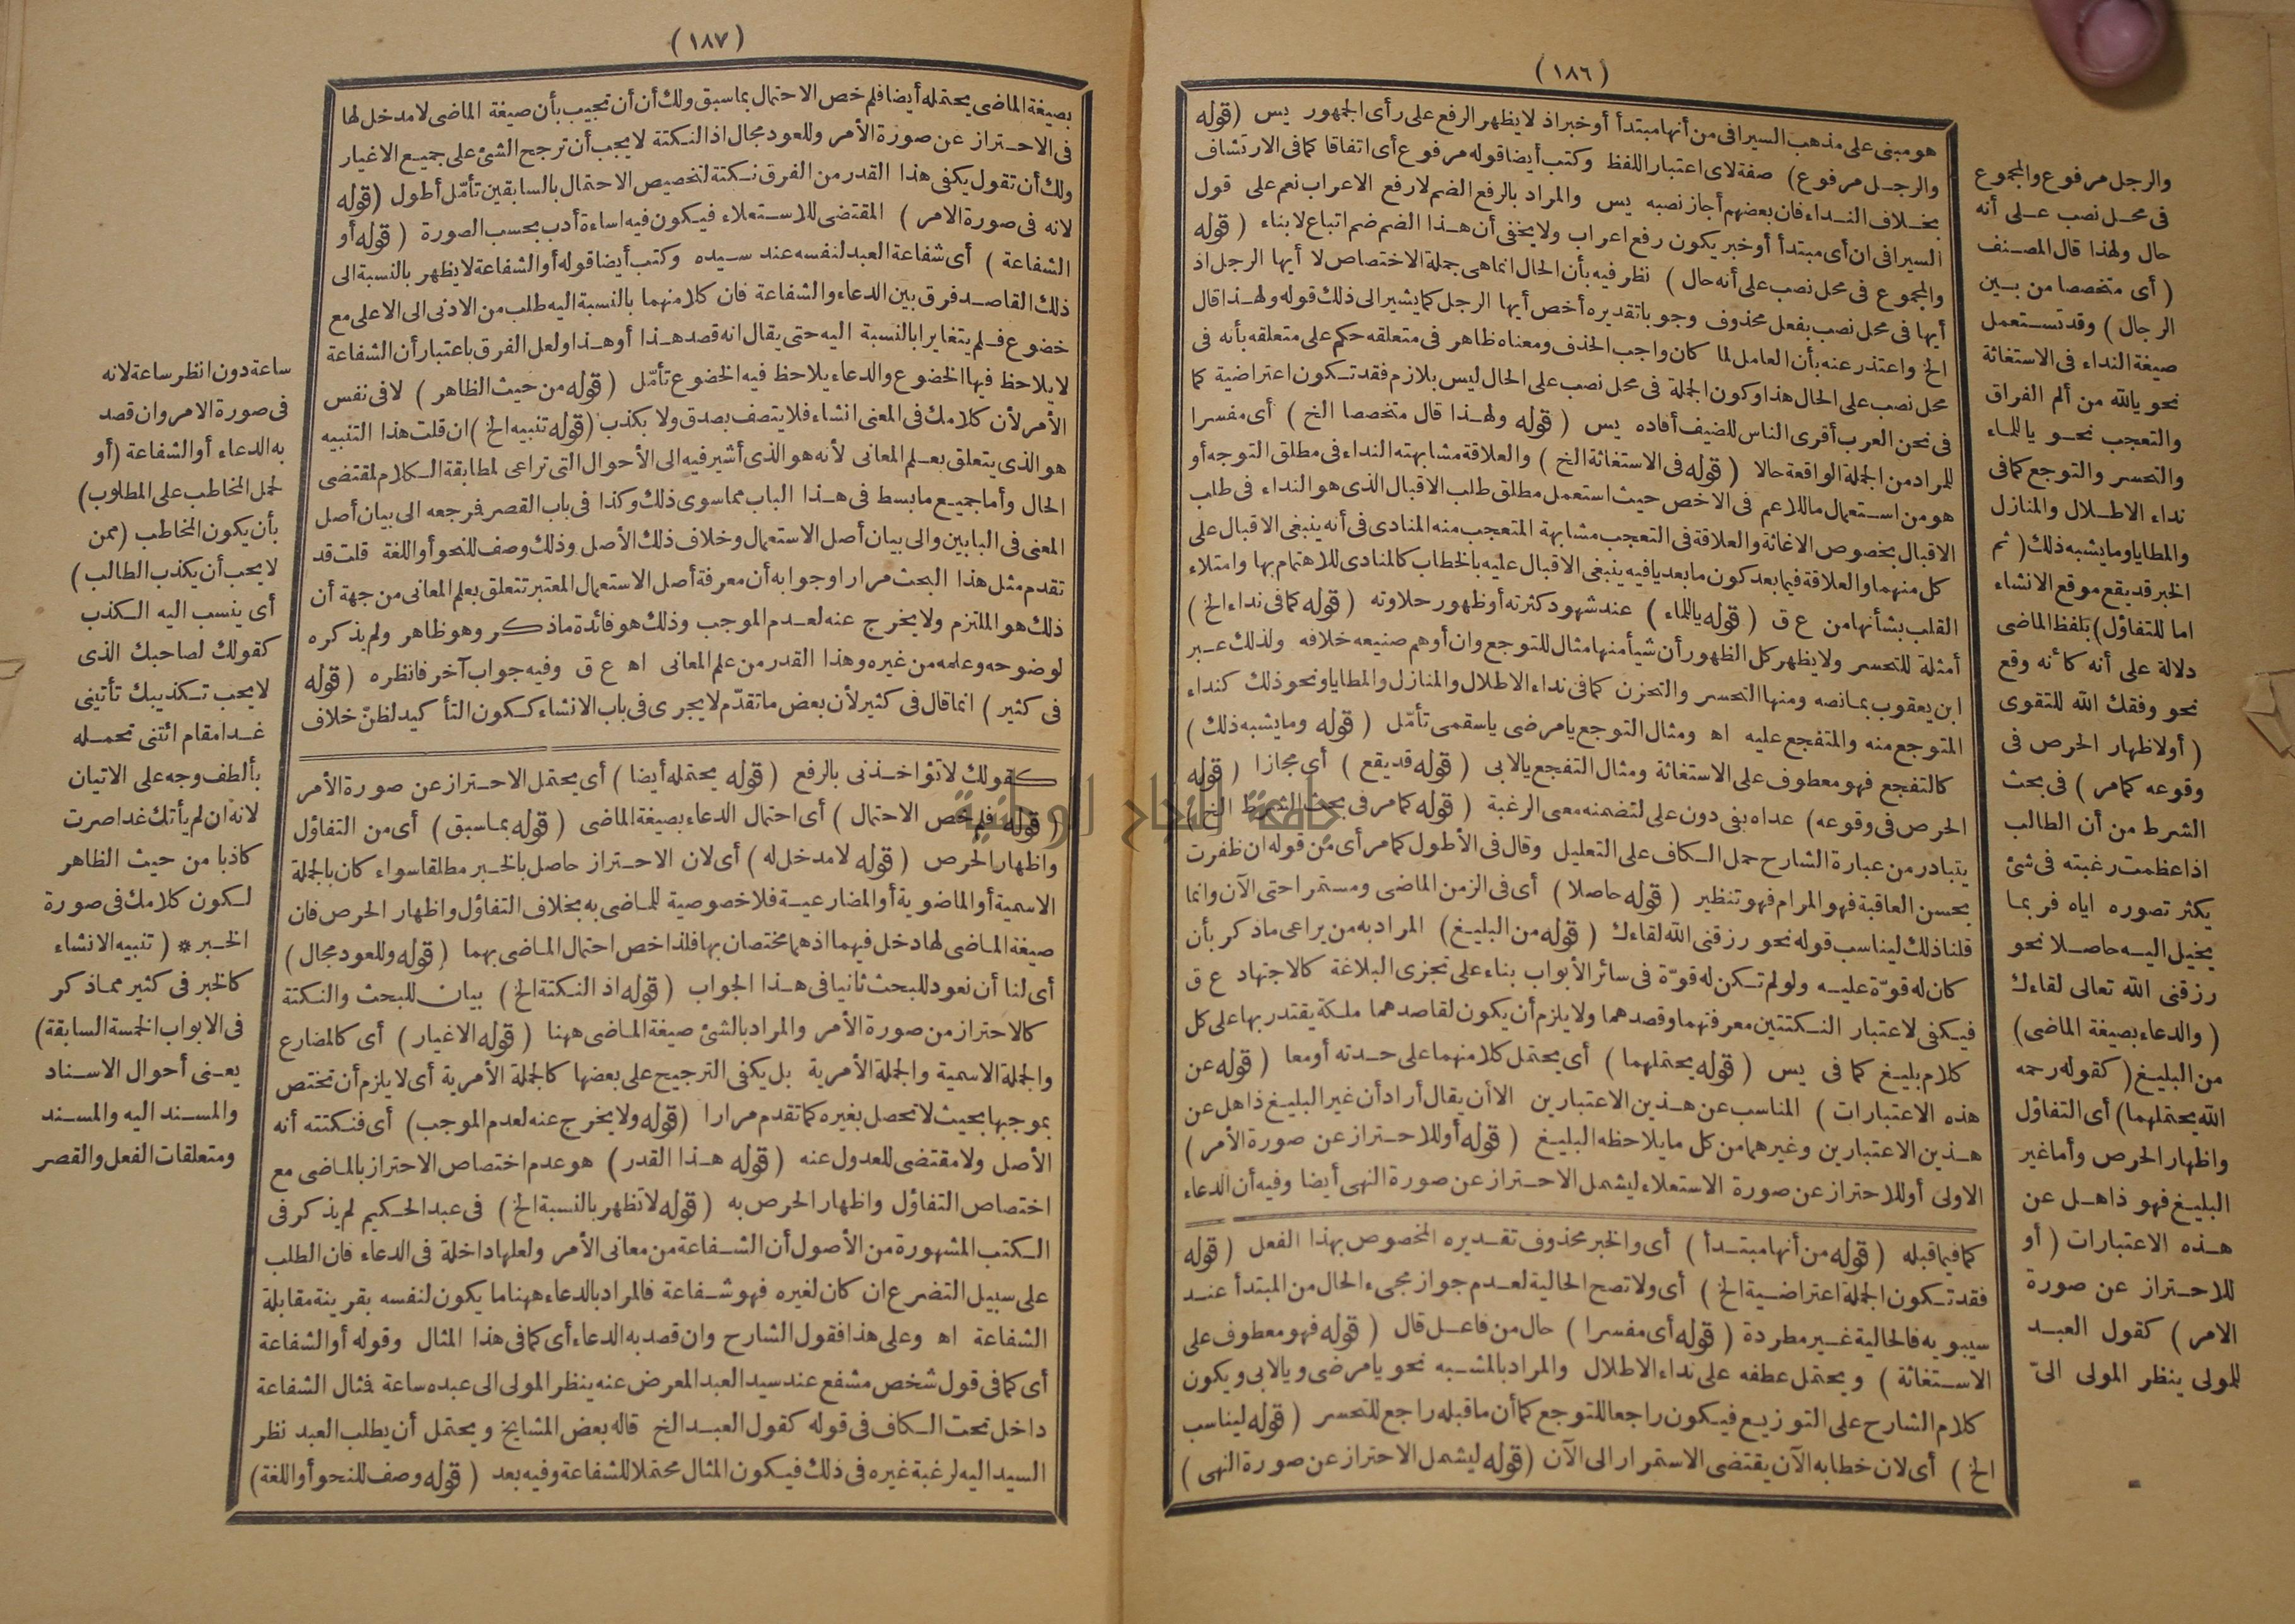 (١٨٦)
هو مبنى على مذهب السيرافى من أنها مبتدأ أو خبر اذ لا يظهر الرفع على رأى الجمهور يس (قوله
والرجل مرفوع) صفة لاى اعتبار اللفظ وكتب أيضا قوله مرفوع أى اتفاقا كما فى الارتشاف
بخلاف النداء فان بعضهم أجاز نصبه يس والمراد بالرفع الضم لا رفع الاعراب نعم على قول
السيرافى ان أى مبتدأ أو خبر يكون رفع اعراب ولا يخفى أن هذا الضم ضم اتباع لا بناء (قوله
والمجموع فى محل نصب على أنه حال) نظر فيه بأن الحال انما هى جملة الاختصاص لا أيها الرجل اذ
أيها فى محل نصب بفعل محذوف وجوبا تقديره أخص أيها الرجل كما يشير الى ذلك قوله ولهذا قال
الخ واعتذر عنه بأن العامل لما كان واجب الحذف ومعناه ظاهر فى متعلقه حكم على متعلقه بأنه فى
محل نصب على الحال هذا وكون الجملة فى محل نصب على الحال ليس بلازم فقد تكون اعتراضية كما
فى نحن العرب أقرى الناس للضيف أفاده يس (قوله ولهذا قال متخصصا الخ) أى مفسرا
للمراد من الجملة الواقعة حالا (قوله فى الاستغاثة الخ) والعلاقة مشابهته النداء فى مطلق التوجه أو
هو من استعمال ما للاعم فى الاخص حيث استعمل مطلق طلب الاقبال الذى هو النداء فى طلب
الاقبال بخصوص الاغاثة والعلاقة فى التعجب مشابهة المتعجب منه المنادى فى أنه ينبغى الاقبال على
كل منهما والعلاقة فيما بعد كون ما بعد يا فيه ينبغى الاقبال عليه بالخطاب كالمنادى للاهتمام بها وامتلاء
القلب بشأنها من ع ق (قوله يا للماء) عند شهود كثرته أو ظهور حلاوته (قوله كما فى نداء الخ)
أمثلة للتحسر ولا يظهر كل الظهور أن شيأ منها مثال للتوجع وان أوهم صنيعه خلافه ولذلك عبر
ابن يعقوب بما نصه ومنها التحسر والتحزن كما فى نداء الاطلال والمنازل والمطايا ونحو ذلك كنداء
المتوجع منه والمتفجع عليه اه ومثال التوجع يا مرضى يا سقمى تأمّل (قوله وما يشبه ذلك)
كالتفجع فهو معطوف على الاستغاثة ومثال التفجع يا لابى (قوله قد يقع) أى مجازا (قوله
الحرص فى وقوعه) عداه بفى دون على لتضمنه معنى الرغبة (قوله كما مر فى بحث الشرط الخ)
يتبادر من عبارة الشارح حمل الكاف على التعليل وقال فى الأطول كما مر أى من قوله ان ظفرت
بحسن العاقبة فهو المرام فهو تنظير (قوله حاصلا) أى فى الزمن الماضى ومستمرا حتى الآن وانما
قلنا ذلك ليناسب قوله نحو رزقنى الله لقاءك (قوله من البليغ) المراد به من يراعى ما ذكر بأن
كان له قوّة عليه ولو لم تكن له قوّة فى سائر الأبواب بناء على تجزى البلاغة كالاجتهاد ع ق
فيكفى لاعتبار النكتتين معرفتهما وقصدهما ولا يلزم أن يكون لقاصدهما ملكة يقتدر بها على كل
كلام بليغ كما فى يس (قوله يحتملهما) أى يحتمل كلا منهما على حدته أو معا (قوله عن
هذه الاعتبارات) المناسب عن هذين الاعتبارين الا أن يقال أراد أن غير البليغ ذاهل عن
هذين الاعتبارين وغيرهما من كل ما يلاحظه البليغ (قوله أو للاحتراز عن صورة الأمر)
الاولى أو للاحتراز عن صورة الاستعلاء ليشمل الاحتراز عن صورة النهى أيضا وفيه أن الدعاء
كما فيما قبله (قوله من أنها مبتدأ) أى والخبر محذوف تقديره المخصوص بهذا الفعل (قوله
فقد تكون الجملة اعتراضية الخ) أى ولا تصح الحالية لعدم جواز مجىء الحال من المبتدأ عند
سيبويه فالحالية غير مطردة (قوله أى مفسرا) حال من فاعل قال (قوله فهو معطوف على
الاستغاثة) ويحتمل عطفه على نداء الاطلال والمراد بالمشبه نحو يا مرضى ويا لابى ويكون
كلام الشارح على التوزيع فيكون راجعا للتوجع كما أن ما قبله راجع للتحسر (قوله ليناسب
الخ) أى لان خطابه الآن يقتضى الاستمرار الى الآن (قوله ليشمل الاحتراز عن صورة النهى)
والرجل مرفوع والمجموع
فى محل نصب على أنه
حال ولهذا قال المصنف
(أى متخصصا من بين
الرجال) وقد تستعمل
صيغة النداء فى الاستغاثة
نحو يالله من ألم الفراق
والتعجب نحو يا للماء
والتحسر والتوجع كما فى
نداء الاطلال والمنازل
والمطايا وما يشبه ذلك (ثم
الخبر قد يقع موقع الانشاء
اما للتفاؤل) بلفظ الماضى
دلالة على أنه كأنه وقع
نحو وفقك الله للتقوى
(أولاظهار الحرص فى
وقوعه كما مر) فى بحث
الشرط من أن الطالب
اذا عظمت رغبته فى شئ
يكثر تصوره اياه فربما
يخيل اليه حاصلا نحو
رزقنى الله تعالى لقاءك
(والدعاء بصيغة الماضى)
من البليغ (كقوله رحمه
الله يحتملهما) أى التفاؤل
واظهار الحرص وأما غير
البليغ فهو ذاهل عن
هذه الاعتبارات (أو
للاحتراز عن صورة
الامر) كقول العبد
للمولى ينظر المولى الىّ
(١٨٧)
بصيغة الماضى يحتمله أيضا فلم خص الاحتمال بما سبق ولك أن أن تجيب بأن صيغة الماضى لا مدخل لها
فى الاحتراز عن صورة الأمر وللعود مجال اذ النكتة لا يجب أن ترجح الشئ على جميع الاغيار
ولك أن تقول يكفى هذا القدر من الفرق نكتة لتخصيص الاحتمال بالسابقين تأمّل أطول (قوله
لانه فى صورة الامر) المقتضى للاستعلاء فيكون فيه اساءة أدب بحسب الصورة (قوله أو
الشفاعة) أى شفاعة العبد لنفسه عند سيده وكتب أيضا قوله أو الشفاعة لا يظهر بالنسبة الى
ذلك القاصد فرق بين الدعاء والشفاعة فان كلا منهما بالنسبة اليه طلب من الادنى الى الاعلى مع
خضوع فلم يتغايرا بالنسبة اليه حتى يقال انه قصد هذا أو هذا ولعل الفرق باعتبار أن الشفاعة
لا يلاحظ فيها الخضوع والدعاء يلاحظ فيه الخضوع تأمّل (قوله من حيث الظاهر) لا فى نفس
الأمر لأن كلامك فى المعنى انشاء فلا يتصف بصدق ولا بكذب (قوله تنبيه الخ) ان قلت هذا التنبيه
هو الذى يتعلق بعلم المعانى لأنه هو الذى أشير فيه الى الأحوال التى تراعى لمطابقة الكلام لمقتضى
الحال وأما جميع ما بسط فى هذا الباب مما سوى ذلك وكذا فى باب القصر فرجعه الى بيان أصل
المعنى فى البابين والى بيان أصل الاستعمال وخلاف ذلك الأصل وذلك وصف للنحو أو اللغة قلت قد
تقدم مثل هذا البحث مرارا وجوابه أن معرفة أصل الاستعمال المعتبر تتعلق بعلم المعانى من جهة أن
ذلك هو الملتزم ولا يخرج عنه لعدم الموجب وذلك هو فائدة ما ذكر وهو ظاهر ولم يذكره
لوضوحه وعلمه من غيره وهذا القدر من علم المعانى اه ع ق وفيه جواب آخر فانظره (قوله
فى كثير) انما قال فى كثير لأن بعض ما تقدّم لا يجرى فى باب الانشاء ككون التأكيد لظنّ خلاف
كقولك لا تؤاخذنى بالرفع (قوله يحتمله أيضا) أى يحتمل الاحتراز عن صورة الأمر
(قوله فلم خص الاحتمال) أى احتمال الدعاء بصيغة الماضى (قوله بما سبق) أى من التفاؤل
واظهار الحرص (قوله لا مدخل له) أى لان الاحتراز حاصل بالخبر مطلقا سواء كان بالجملة
الاسمية أو الماضوية أو المضارعية فلا خصوصية للماضى به بخلاف التفاؤل واظهار الحرص فان
صيغة الماضى لها دخل فيهما اذ هما مختصان بها فلذا خص احتمال الماضى بهما (قوله وللعود مجال)
أى لنا أن نعود للبحث ثانيا فى هذا الجواب (قوله اذ النكتة الخ) بيان للبحث والنكتة
كالاحتراز من صورة الأمر والمراد بالشئ صيغة الماضى ههنا (قوله الاغيار) أى كالمضارع
والجملة الاسمية والجملة الأمرية بل يكفى الترجيح على بعضها كالجملة الأمرية أى لا يلزم أن تختص
بموجبها بحيث لا تحصل بغيره كما تقدم مرارا (قوله ولا يخرج عنه لعدم الموجب) أى فنكتته أنه
الأصل ولا مقتضى للعدول عنه (قوله هذا القدر) هو عدم اختصاص الاحتراز بالماضى مع
اختصاص التفاؤل واظهار الحرص به (قوله لا تظهر بالنسبة الخ) فى عبد الحكيم لم يذكر فى
الكتب المشهورة من الأصول أن الشفاعة من معانى الأمر ولعلها داخلة فى الدعاء فان الطلب
على سبيل التضرع ان كان لغيره فهو شفاعة فالمراد بالدعاء ههنا ما يكون لنفسه بقرينة مقابلة
الشفاعة اه وعلى هذا فقول الشارح وان قصد به الدعاء أى كما فى هذا المثال وقوله أو الشفاعة
أى كما فى قول شخص مشفع عند سيد العبد المعرض عنه ينظر المولى الى عبده ساعة فثال الشفاعة
داخل تحت الكاف فى قوله كقول العبد الخ قاله بعض المشايخ ويحتمل أن يطلب العبد نظر
السيد اليه لرغبة غيره فى ذلك فيكون المثال محتملا للشفاعة وفيه بعد (قوله وصف للنحو أو اللغة)
ساعة دون انظر ساعة لانه
فى صورة الامر وان قصد
به الدعاء أو الشفاعة (أو
لحمل المخاطب على المطلوب)
بأن يكون المخاطب (ممن
لا يحب أن يكذب الطالب)
أى ينسب اليه الكذب
كقولك لصاحبك الذى
لا يحب تكذيبك تأتينى
غدا مقام ائتنى تحمله
بألطف وجه على الاتيان
لانه ان لم يأتك غدا صرت
كاذبا من حيث الظاهر
لكون كلامك فى صورة
الخبر * (تنبيه الانشاء
كالخبر فى كثير مما ذكر
فى الابواب الخمسة السابقة)
يعنى أحوال الاسناد
والمسند اليه والمسند
ومتعلقات الفعل والقصر
جامعة النجاح الوطنية